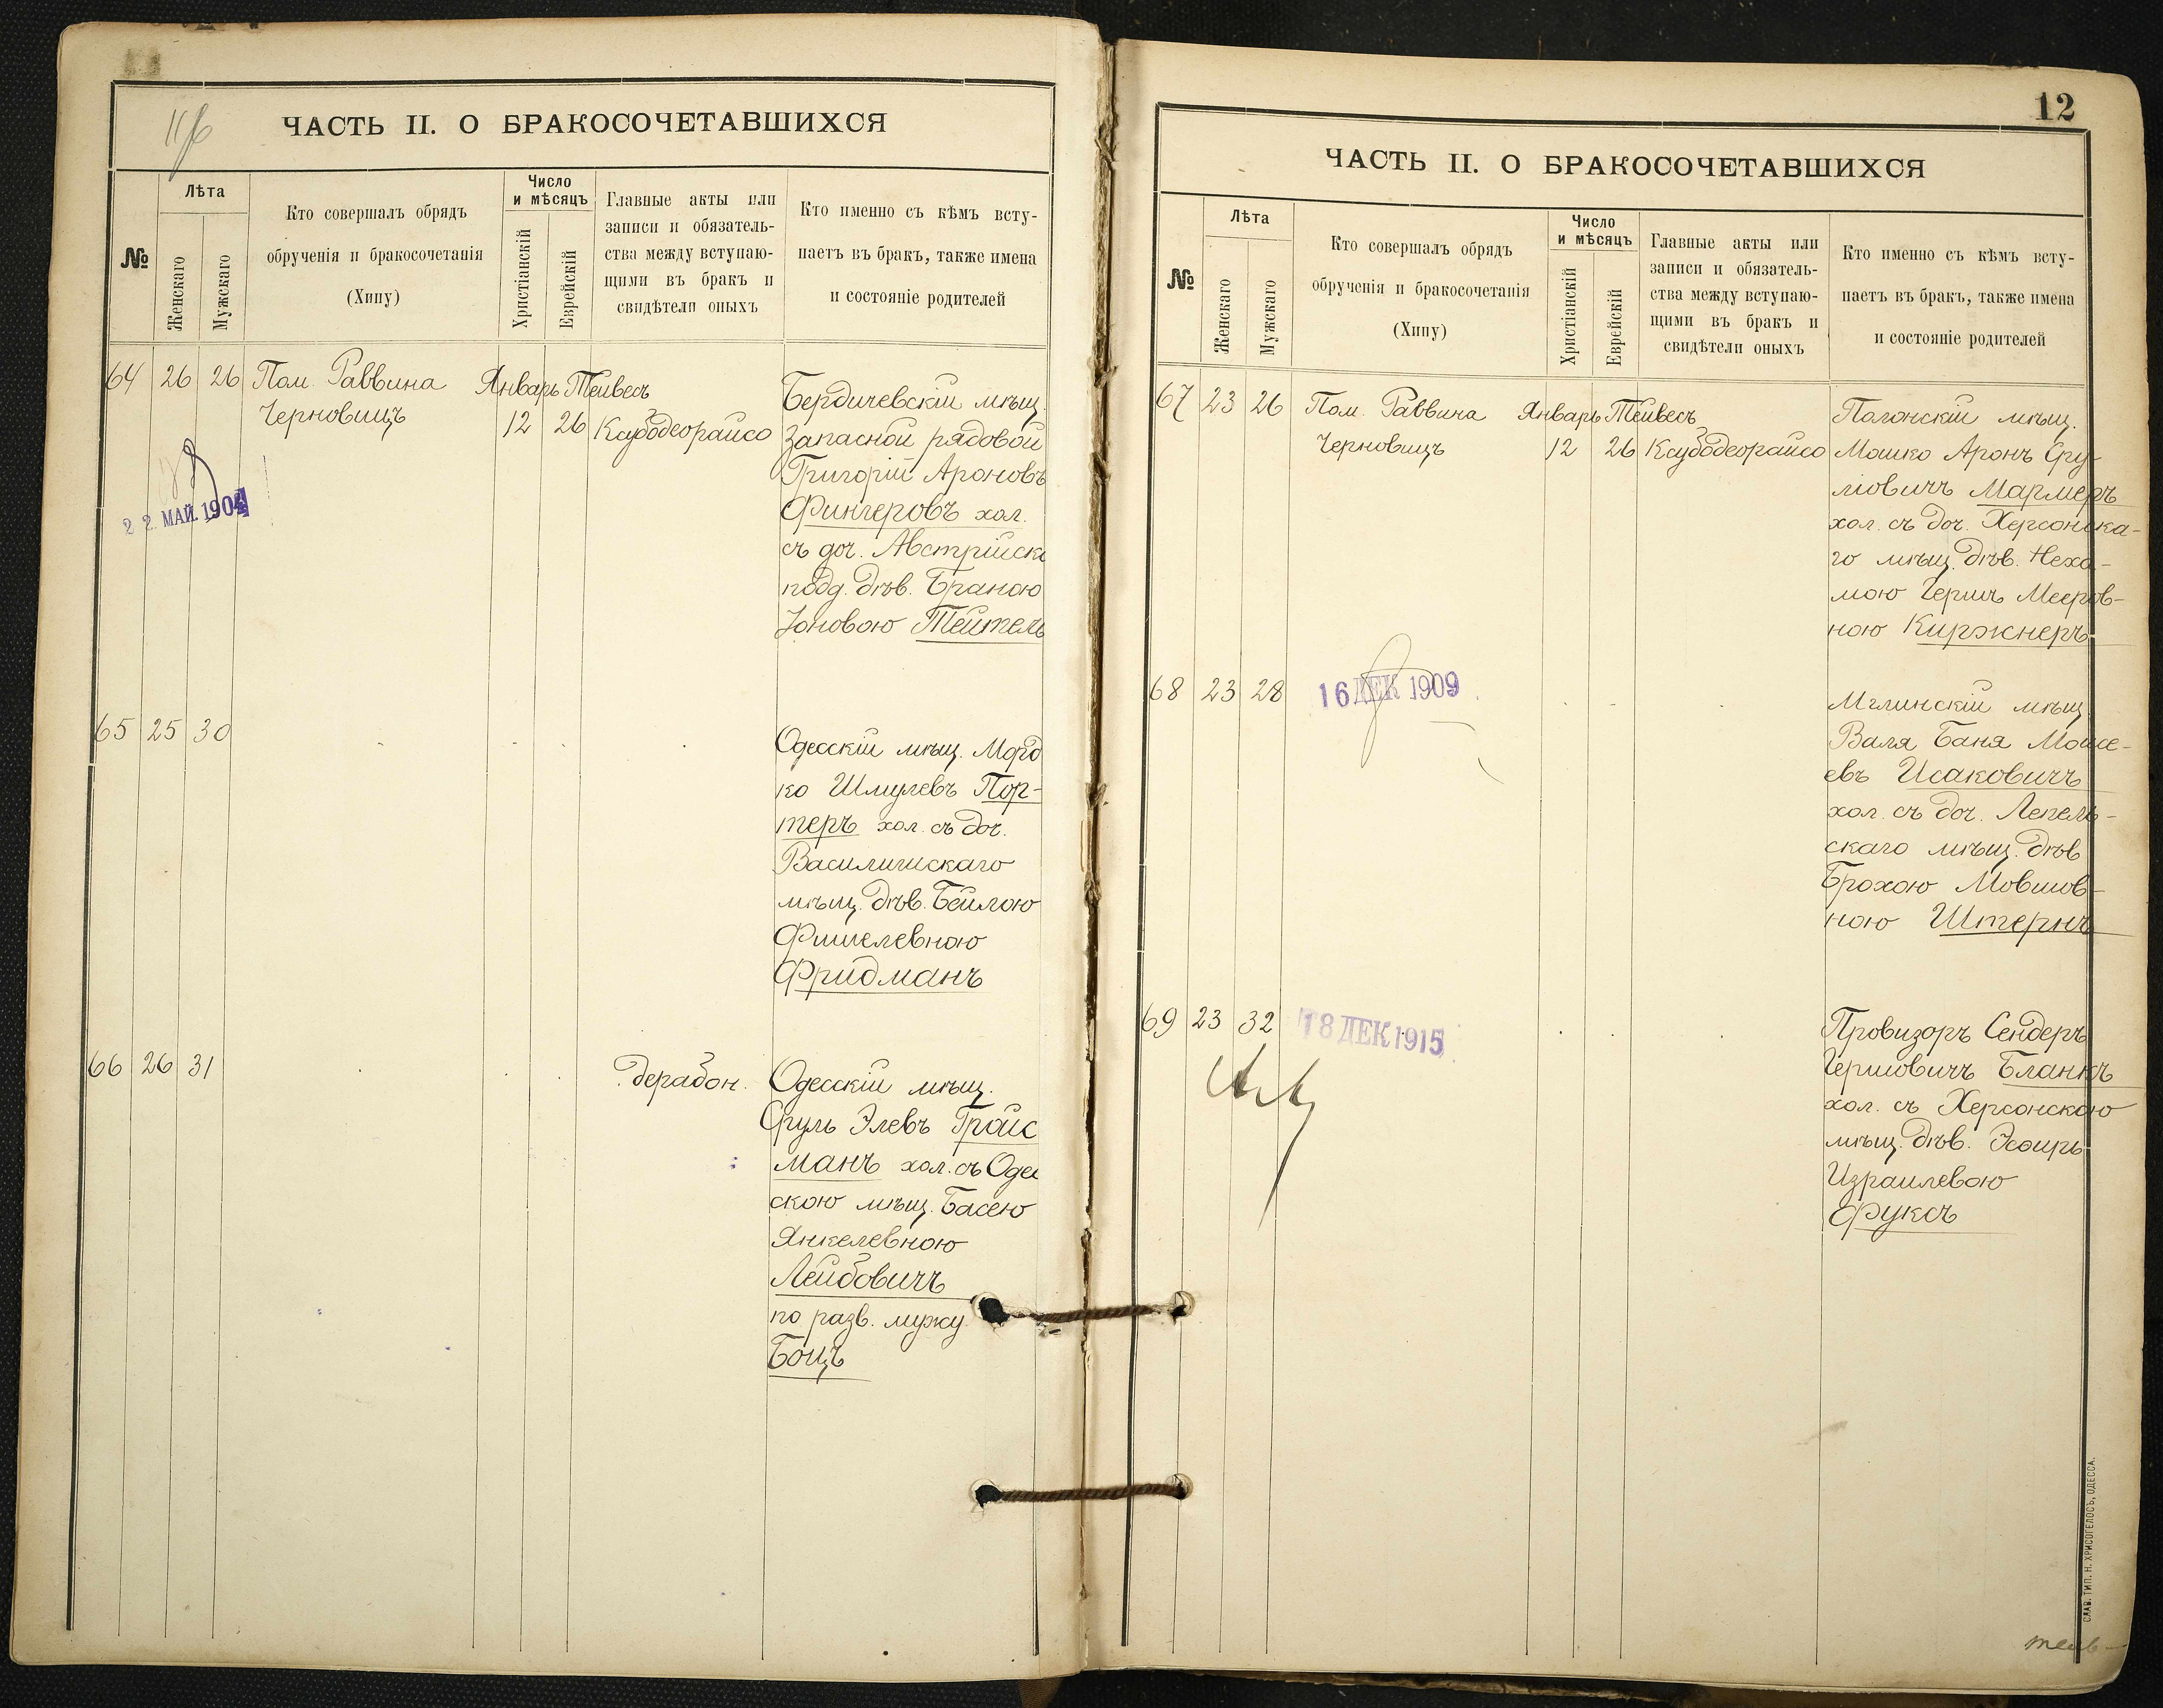 ЧАСТЬ II. О БРАКОСОЧЕТАВШИХСЯ
№
Лѣта
Женскаго
Мужскаго
Кто совершалъ обрядъ
обрученія и бракосочетанія
(Хипу)
Число
и мѣсяцъ
Христіанскій
Еврейскій
Главные акты или
записи и обязатель-
ства между вступаю-
щими въ бракъ и
свидѣтели оныхъ
Кто именно съ кѣмъ всту-
паетъ въ бракъ, также имена
и состояніе родителей
64 26 26 Пом. Раввина Январь Тейвесъ
Черновицъ 12 26 Ксубодеорайсо
Бердичевскій мѣщ.
Запасной рядовой
Григорій Ароновъ
Фингеровъ хол.
съ доч. Австрійск
подд. дѣв. Браною
Іоновою Тейтель
22 МАЙ 1904
65 25 30
Одесскій мѣщ. Морд
ко Шмулевъ Пор-
теръ хол. съ доч.
Василишскаго
мѣщ. дѣв. Бейлою
Фишелевною
Фридманъ
66 26 31 дерабон.
Одесскій мѣщ.
Сруль Элевъ Гройс
манъ хол. съ Одес
скою мѣщ. Басею
Янкелевною
Лейбовичъ
по разв. мужу
Боицъ
12
ЧАСТЬ II. О БРАКОСОЧЕТАВШИХСЯ
№
Лѣта
Женскаго
Мужскаго
Кто совершалъ обрядъ
обрученія и бракосочетанія
(Хипу)
Число
и мѣсяцъ
Христіанскій
Еврейскій
Главные акты или
записи и обязатель-
ства между вступаю-
щими въ бракъ и
свидѣтели оныхъ
Кто именно съ кѣмъ всту-
паетъ въ бракъ, также имена
и состояніе родителей
67 23 26 Пом. Раввина Январь Тейвесъ
Черновицъ 12 26 Ксубодеорайсо
Полонскій мѣщ.
Мошко Аронъ Сру-
лiовичъ Мармеръ
хол. съ доч. Херсонска-
го мѣщ. дѣв. Неха-
мою Гершъ Мееров-
ною Киржнеръ
68 23 28
16 ДЕК 1909
Мглинскій мѣщ.
Валя Баня Моисе-
евъ Исаковичъ
хол. съ доч. Лепель-
скаго мѣщ. дѣв
Брохою Мовшов-
ною Штернъ
69 23 32
18 ДЕК 1915
Провизоръ Сендеръ
Гершовичъ Бланкъ
хол. съ Херсонскою
мѣщ. дѣв. Эсѳирь
Израилевою
Фуксъ
СЛАВ. ТИП. Н. ХРИСОГЕЛОСЪ, ОДЕССА.